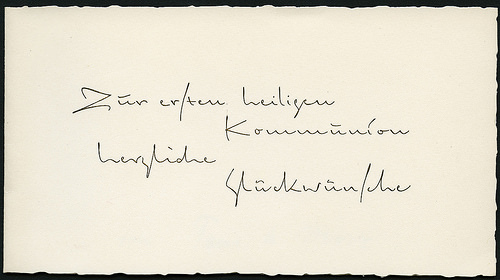 Zur ersten heiligen
Kommunion
herzliche
Glückwünsche